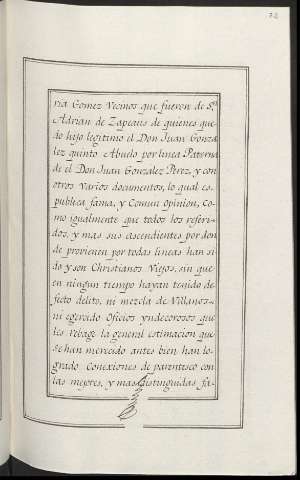 72
ria Gomez Vecinos que fueron de Sⁿ
Adrian de Zapeaus de quienes que-
do hijo legitimo el Don Juan Gonza
lez quinto Abuelo por linea Paterna
de el Don Juan Gonzalez Perez, y con
otros varios documentos, lo qual es
publica fama, y Comun opinion, Co-
mo igualmente que todos los referi-
dos, y mas sus ascendientes por don
de provienen por todas lineas han si-
do y son Christianos Viejos, sin que
en ningun tiempo hayan tenido de-
fecto delito, ni mezcla de Villanos
ni egercido Oficios yndecorosos que
les rebage la general estimacion que
se han merecido antes bien han lo-
grado Conexiones de parentesco con
las mejores, y mas distinguidas fa-